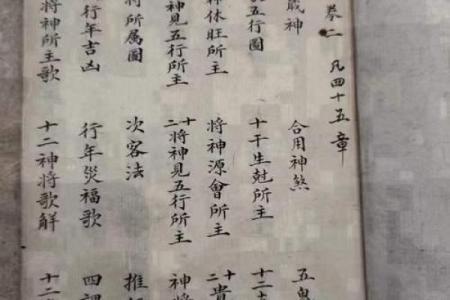 卷二 凡四十五章
神 合用神煞 五鬼
五行圖 十干生尅所主 十二
休旺所主 將神源會所主 十二貴
神見五行所主 十二將神見五行所主 神將
將所属圖 次客法 推
行年吉凶 行年災福歌 四課
將神所主歌 十二神將歌解 十二